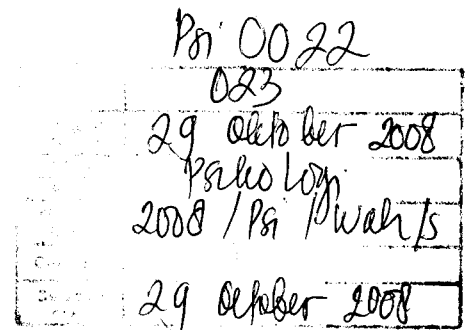 Psi 0022
023
29 Oktober 2008
Psikologi
2008 / Psi / Wah/s
29 Oktober 2008